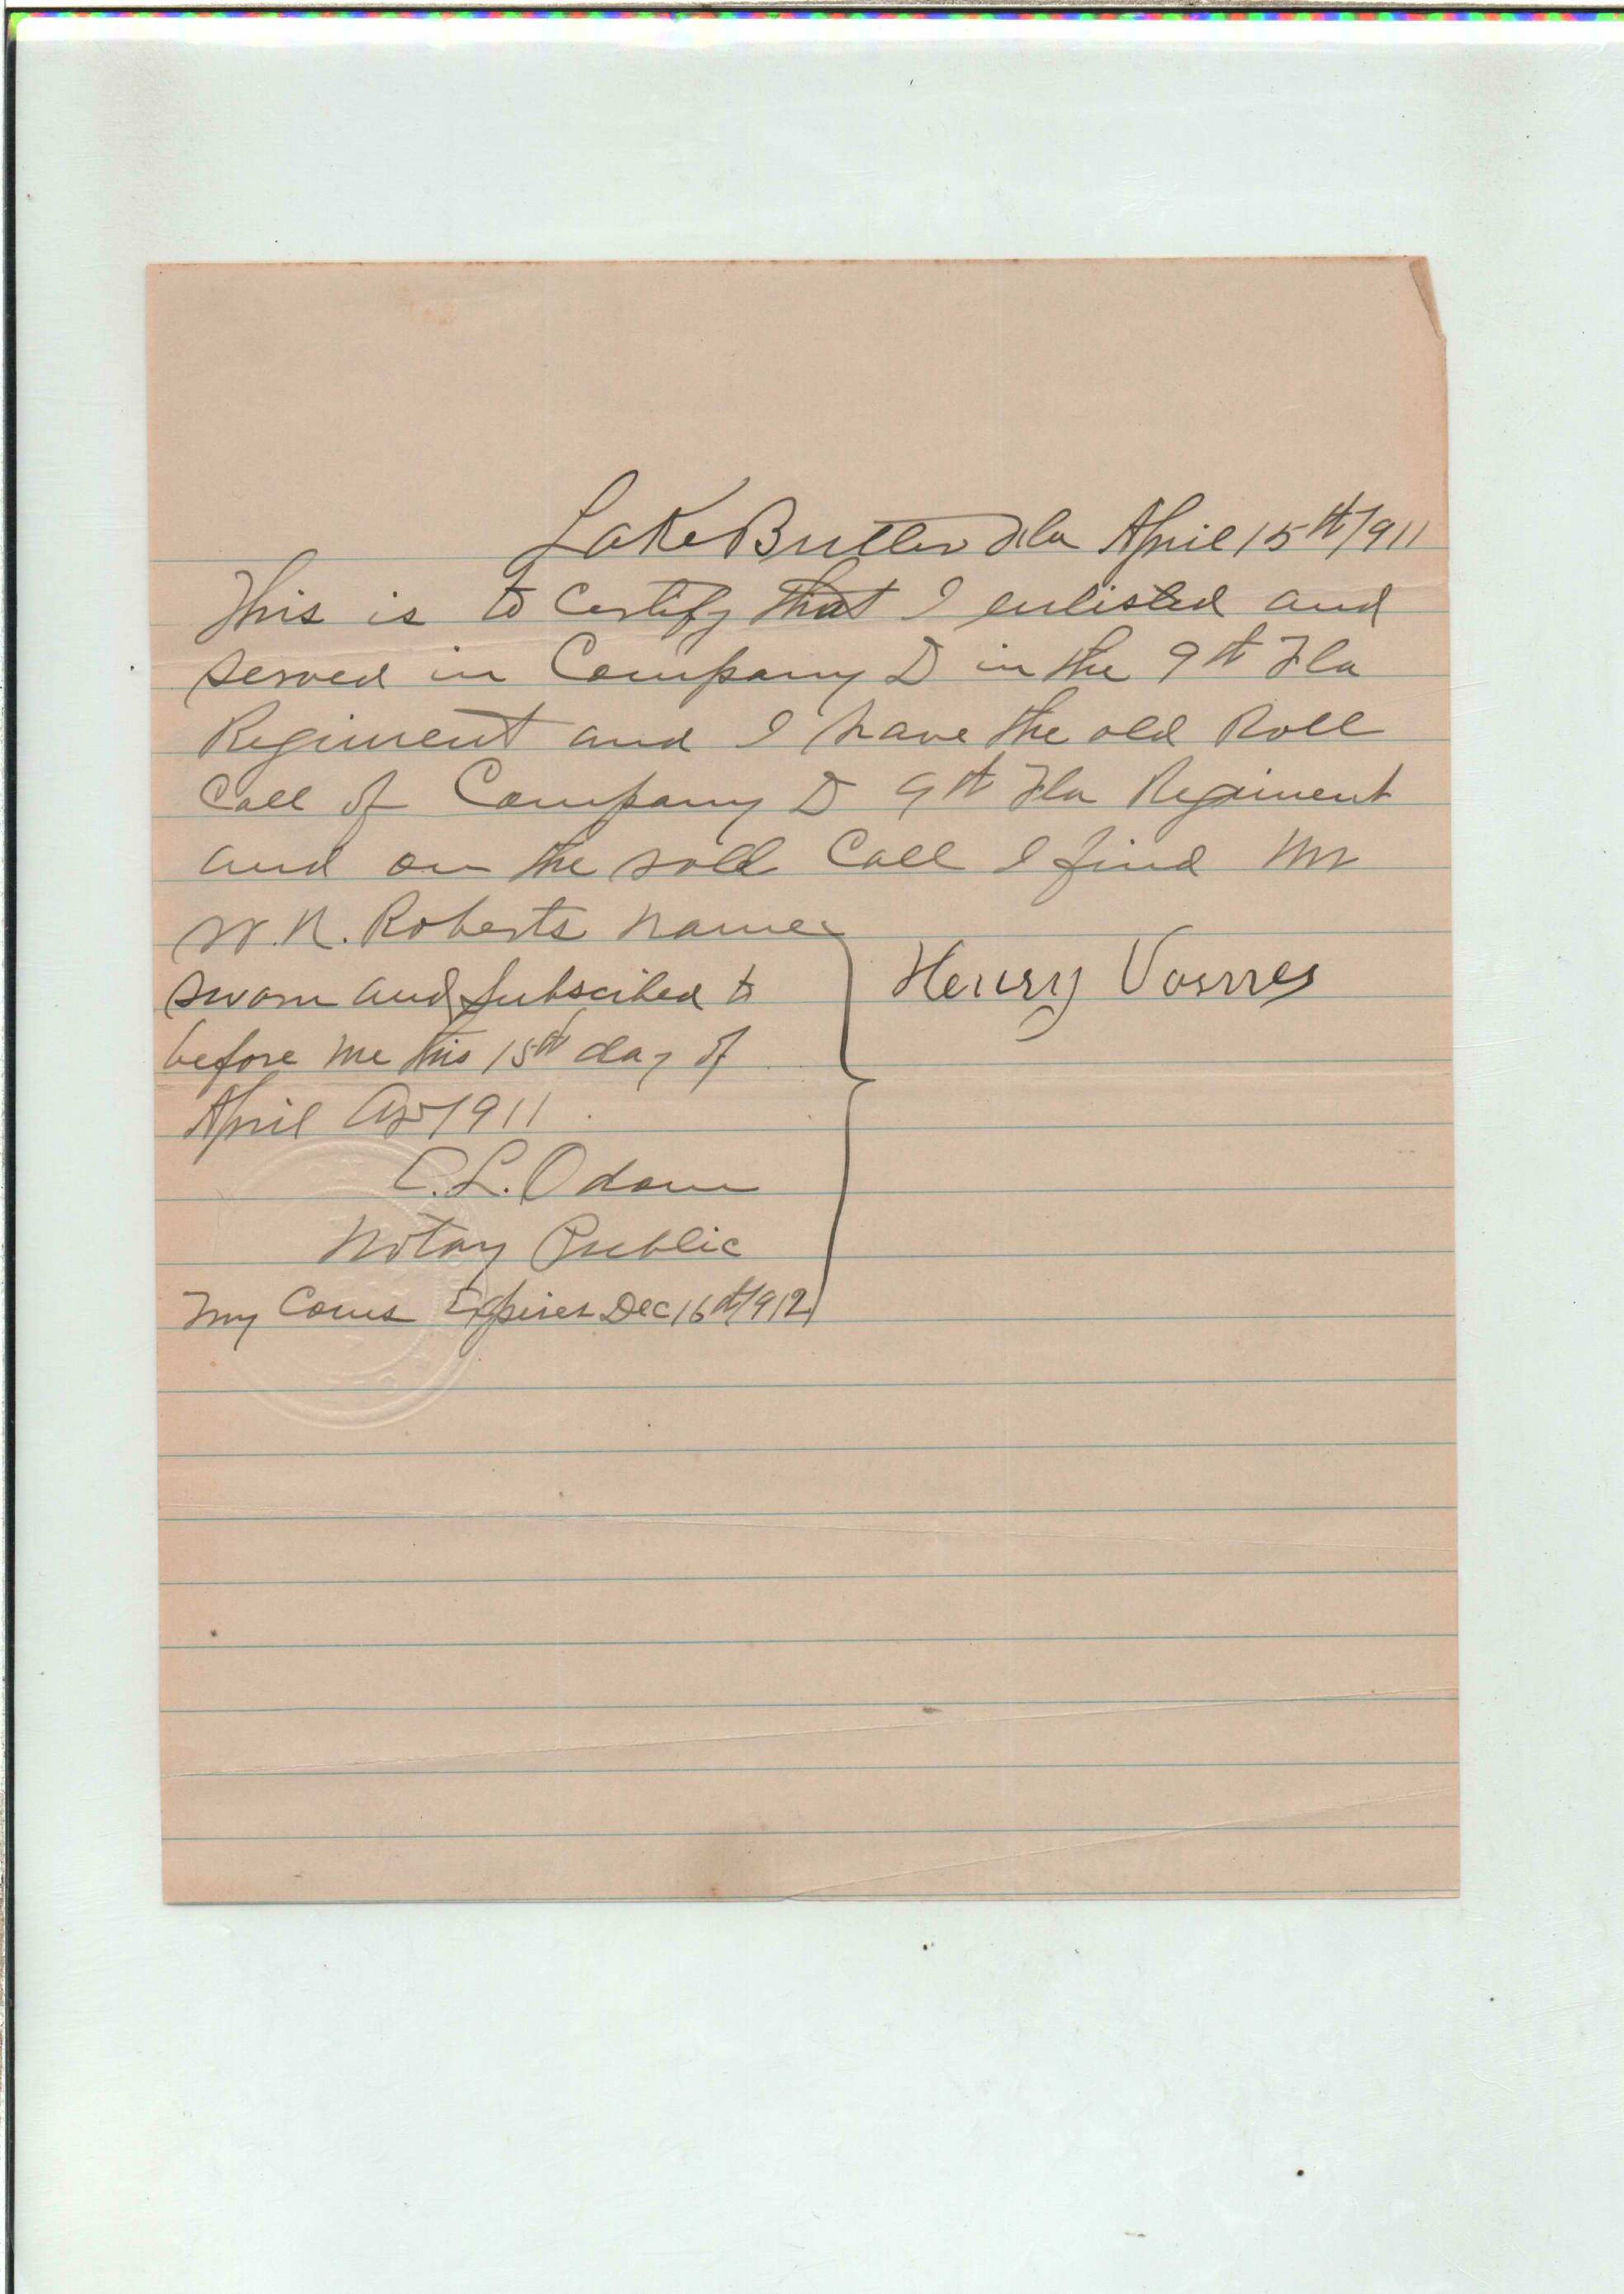 Lake Butler Fla April 15th 1911
This is to Certify that I enlisted and
served in Company D in the 9th Fla
Regiment and I have the old Roll
Call of Company D 9th Fla Regiment
and on the roll Call I find Mr
W. N. Roberts name
Henry
sworn and Subscibed to
before me this 15th day of
April AD 1911
C. L. Odom
Notay Public
My Coms Expires Dec 16th 1912